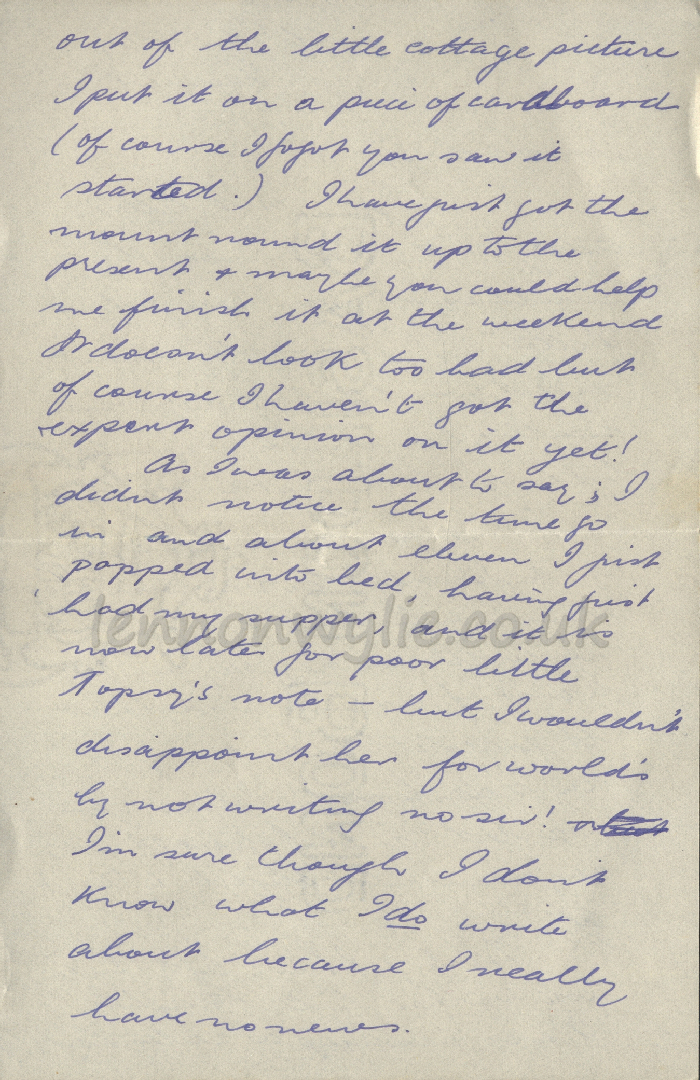 out of the little cottage picture
I put it on a peice of cardboard
(of course I fogot you saw it
started.) I have just got the
mount round it up to the
present & maybe you could help
me finish it at the weekend
It doesn't look too bad but
of course I haven't got the
expert opinion on it yet!
As I was about to say; I
didn't notice the time go
in and about eleven I just
popped into bed, having just
had my supper, and it is
now late for poor little
Topsy's note – but I wouldn't
disappoint her for world's
by not writing no sir!
I'm sure though I don't
know what I do write
about because I really
have no news.
lennonwylie.co.uk